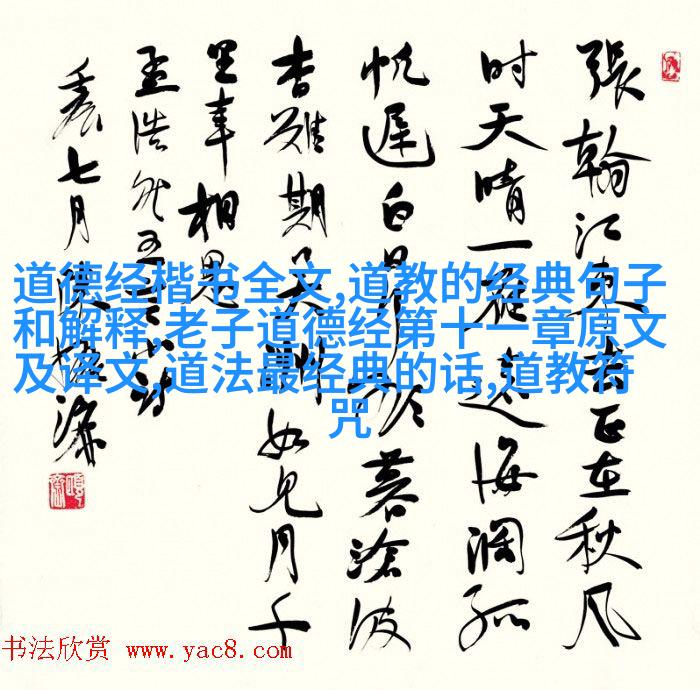 張翰江東去正在秋風
时天晴一雁远海濶孤
帆遲白日行欲暮滄波
杳難期吴洲如見月千
里幸相思
孟浩然五言詩
七月
道德经楷书全文,道教的经典句子
和解释,老子道德经第十一章原文
及译文,道法最经典的话,道教符
咒
书法欣赏 www.yac8.com